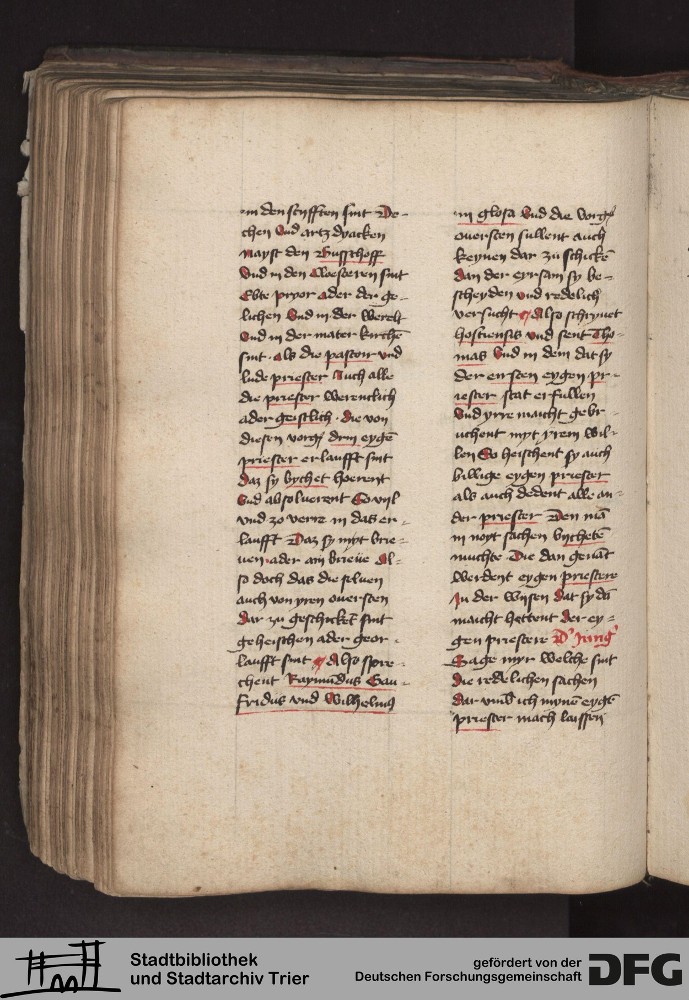 in den stifften sint De-
chen Vnd artz dyacken
Nayst den Busschoff
Vnd in den cloesteren sint
Ebte pryor ader der ge-
lichen Vnd in der werelt
Vnd in der mater kirchē
sint. als die pastoir vnd
lude priester Auch alle
die priester werentlich
ader geistlich. die von
diesen vorg drin eygē
priester erlaufft sint
Daz sy bychet hoerent
Vnd absoluerent So viil
vnd zo verre in das er-
laufft Daz sy myt brie-
uen. ader ain brieue Al-
so doch das die seluen
auch von yren ouersten
Dar zu geschicket sint
geheischen ader geor-
laufft sint Also spre-
chent Raymūdus Gau-
fridus vnd Wilhelmus
in glosa Vnd die vorg
ouersten sullent auch
keynen dar zu schickē
Dan der eyrsam sy be-
scheyden vnd redelich
versucht Also schryuet
hostiensis vnd sent Tho-
mas Vnd in dem dat sy
der ersten eygen pr-
iester stat erfullen
Vnd yrre maicht gebr-
uchent myt yrem wil-
len So heischent sy auch
billige eygen priester
als auch dedent alle an-
der priester Den mā
in noyt sachen bychetē
muchte Die dan genāt
werdent eygen priestere
In der wysen Dat sy dā
maicht hettent der ey-
gen priestere D' Iung'
Sage myr welche sint
die redelichen sachen
dar vmb ich mynē eygē
priester mach laissen
Stadtbibliothek
und Stadtarchiv Trier
gefördert von der
Deutschen Forschungsgemeinschaft
DFG